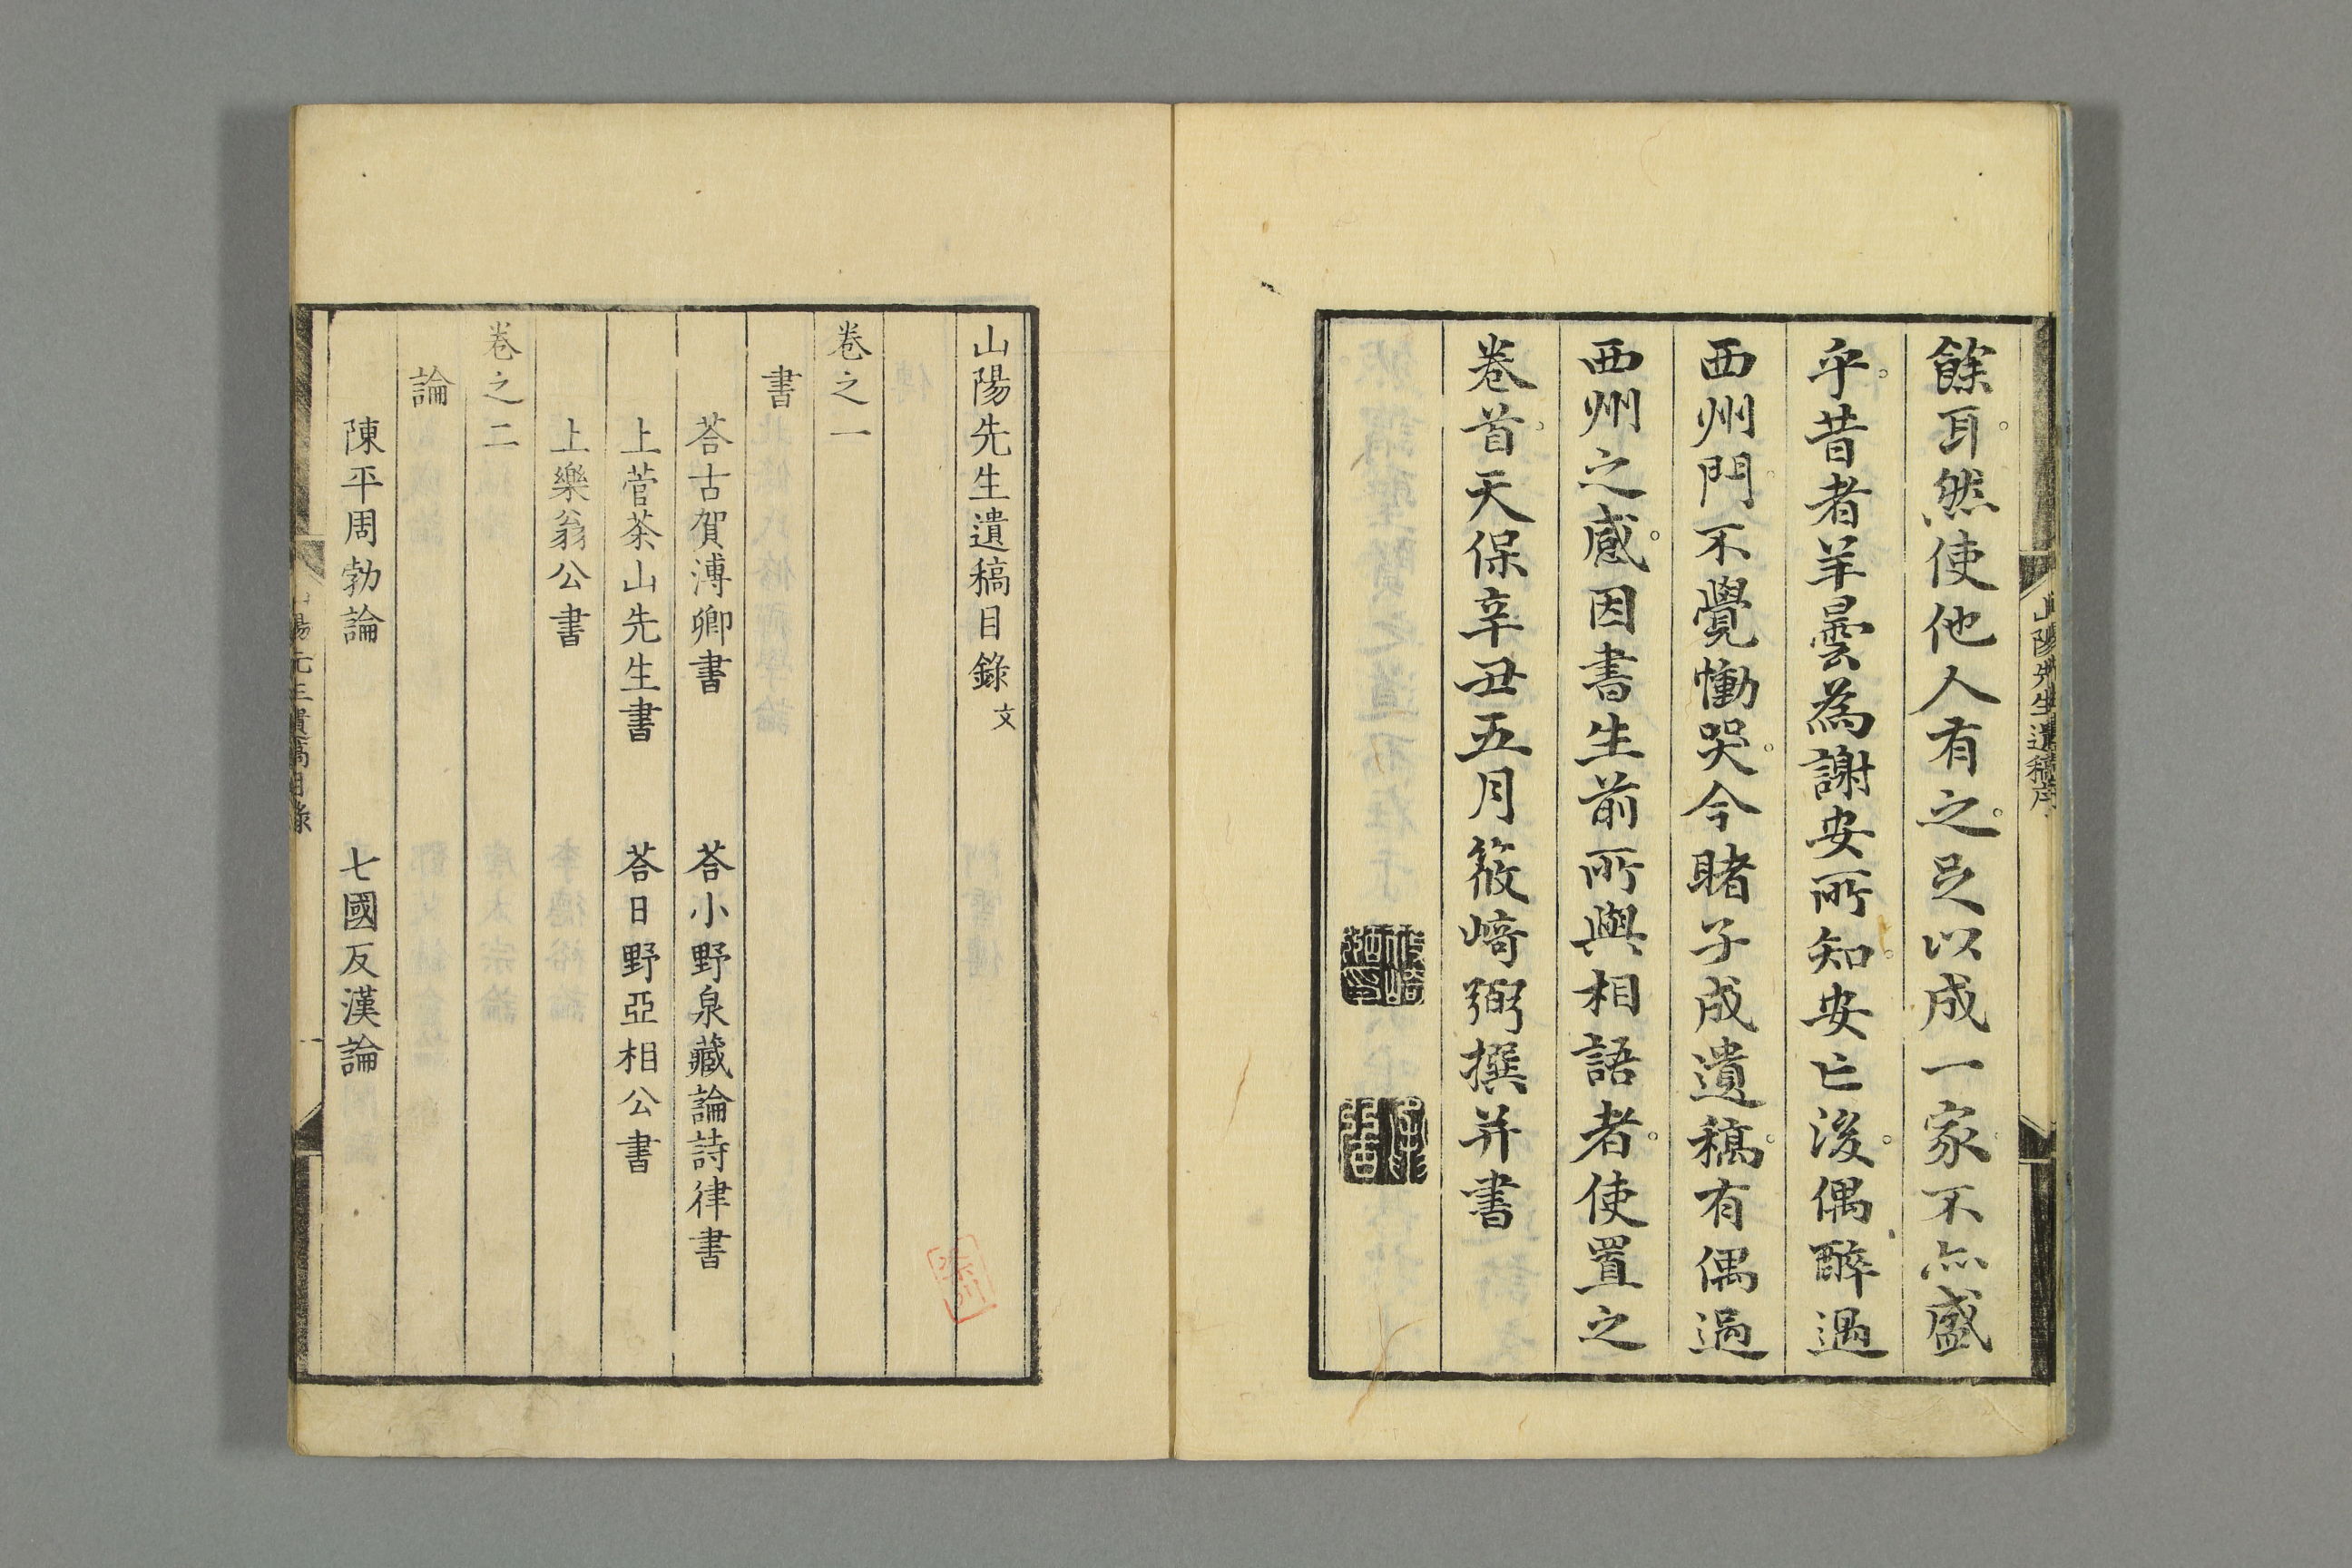 餘耳。然使他人有之。足以成一家不亦盛
乎。昔者羊曇為謝安所知。安亡後。偶醉過
西州門。不覺慟哭。今睹子成遺稿。有偶過
西州之感。因書生前所與相語者。使置之
巻首。天保辛丑五月筱﨑弼撰并書
山陽先生遺稿序
山陽先生遺稿目錄文
巻之一
書
荅古賀溥卿書　荅小野泉藏論詩律書
上菅茶山先生書　荅日野亞相公書
上樂翁公書
巻之二
論
陳平周勃論　七國反漢論
山陽先生遺稿目錄
一